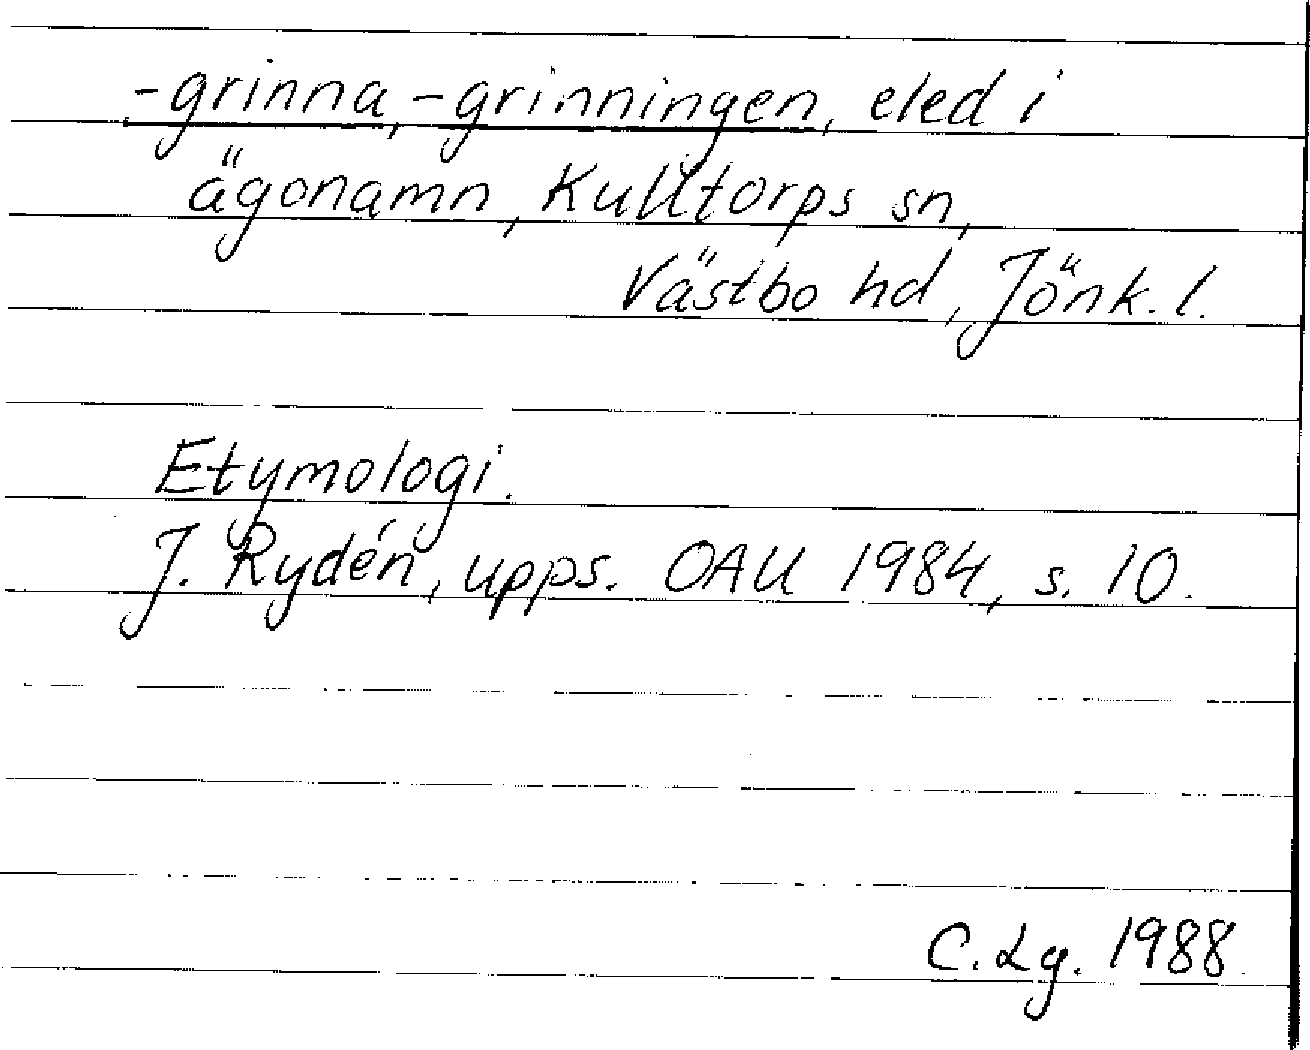 -grinna, -grinningen, eled i
ägonamn, Kulltorps sn,
Västbo hd, Jönk. l.
Etymologi.
J. Rydén, upps. OAU 1984, s. 10.
C. Lg. 1988